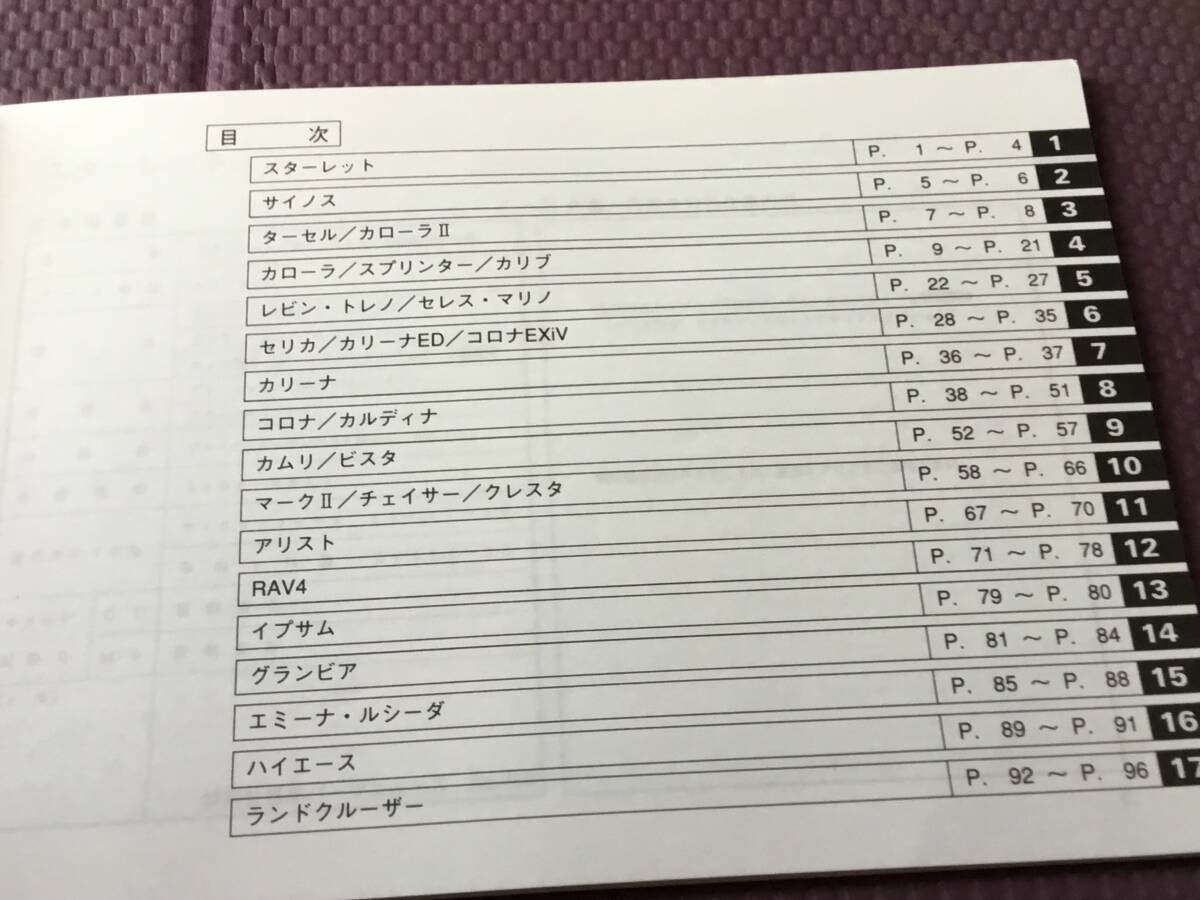 目 次
スターレット P. 1 ～ P. 4 1
サイノス P. 5 ～ P. 6 2
ターセル／カローラⅡ P. 7 ～ P. 8 3
カローラ／スプリンター／カリブ P. 9 ～ P. 21 4
レビン・トレノ／セレス・マリノ P. 22 ～ P. 27 5
セリカ／カリーナED／コロナEXiV P. 28 ～ P. 35 6
カリーナ P. 36 ～ P. 37 7
コロナ／カルディナ P. 38 ～ P. 51 8
カムリ／ビスタ P. 52 ～ P. 57 9
マークⅡ／チェイサー／クレスタ P. 58 ～ P. 66 10
アリスト P. 67 ～ P. 70 11
RAV4 P. 71 ～ P. 78 12
イプサム P. 79 ～ P. 80 13
グランビア P. 81 ～ P. 84 14
エミーナ・ルシーダ P. 85 ～ P. 88 15
ハイエース P. 89 ～ P. 91 16
ランドクルーザー P. 92 ～ P. 96 17